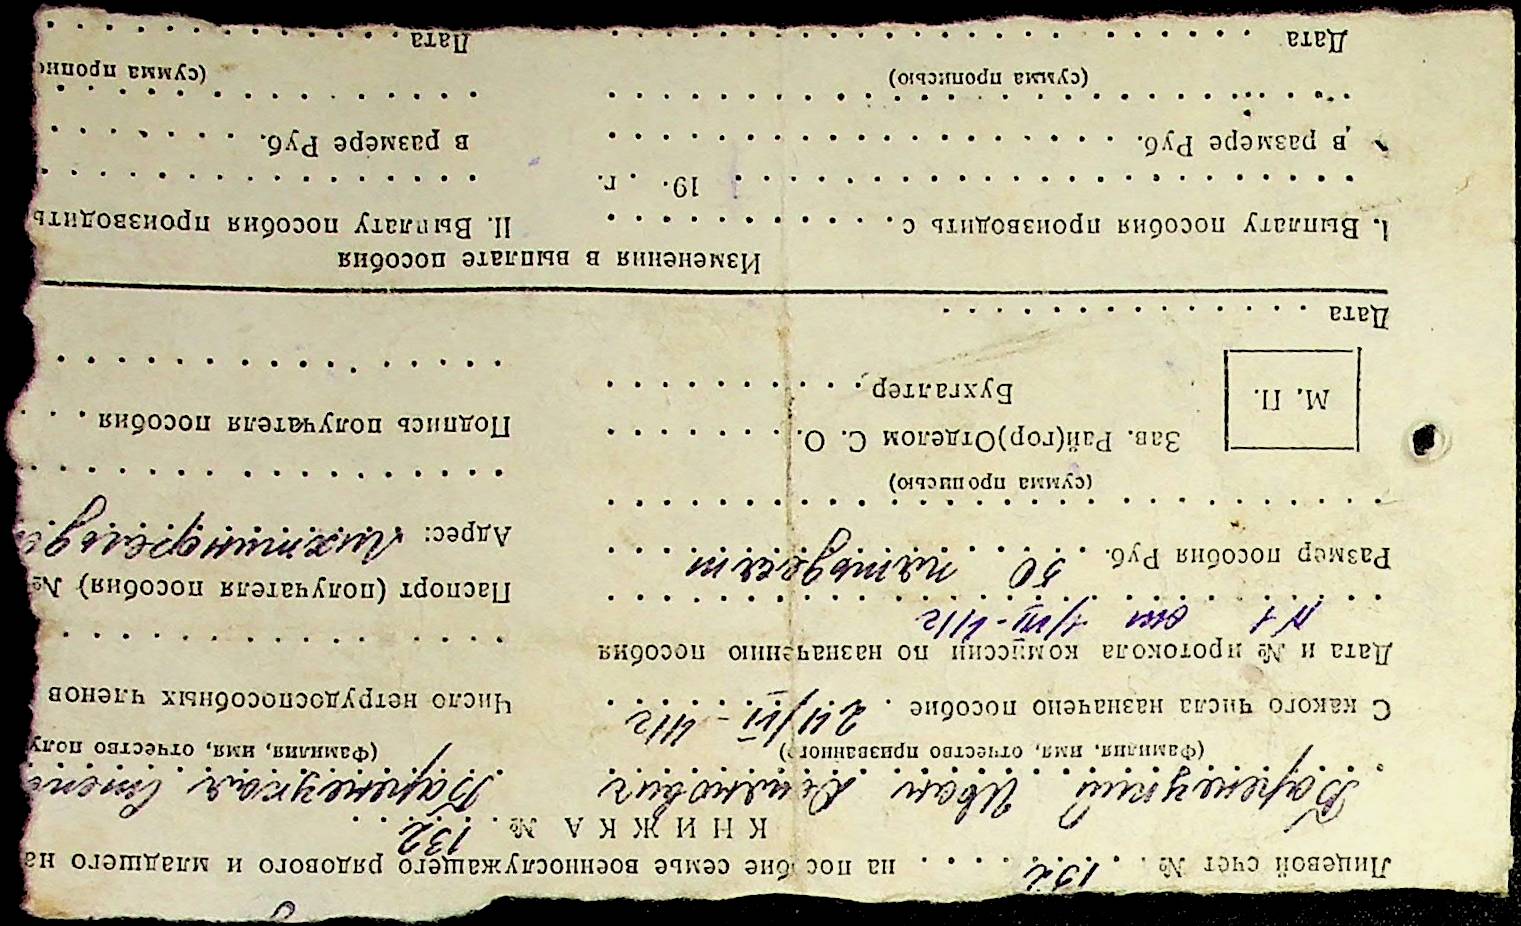 Лицевой счет № 132 на пособие семье военнослужащего рядового и младшего на
КНИЖКА № 132
Варенецкий Иван Варенецкая
(фамилия, имя, отчество призванного) (фамилия, имя, отчество полу
С какого числа назначено пособие 24/VI-41г Число нетрудоспособных членов
Дата и № протокола комиссии по назначению пособия
№1 от 1/VII-41г Паспорт (получателя пособия) №
Размер пособия Руб. 50 пятьдесят Адрес:
(сумма прописью)
Зав. Рай(гор)Отделом С. О. Подпись получателя пособия
М. П. Бухгалтер
Дата
Изменения в выплате пособия
I. Выплату пособия производить с II. Выплату пособия производить
19 . г.
в размере Руб. в размере Руб.
(сумма прописью) (сумма пропис
Дата Дата